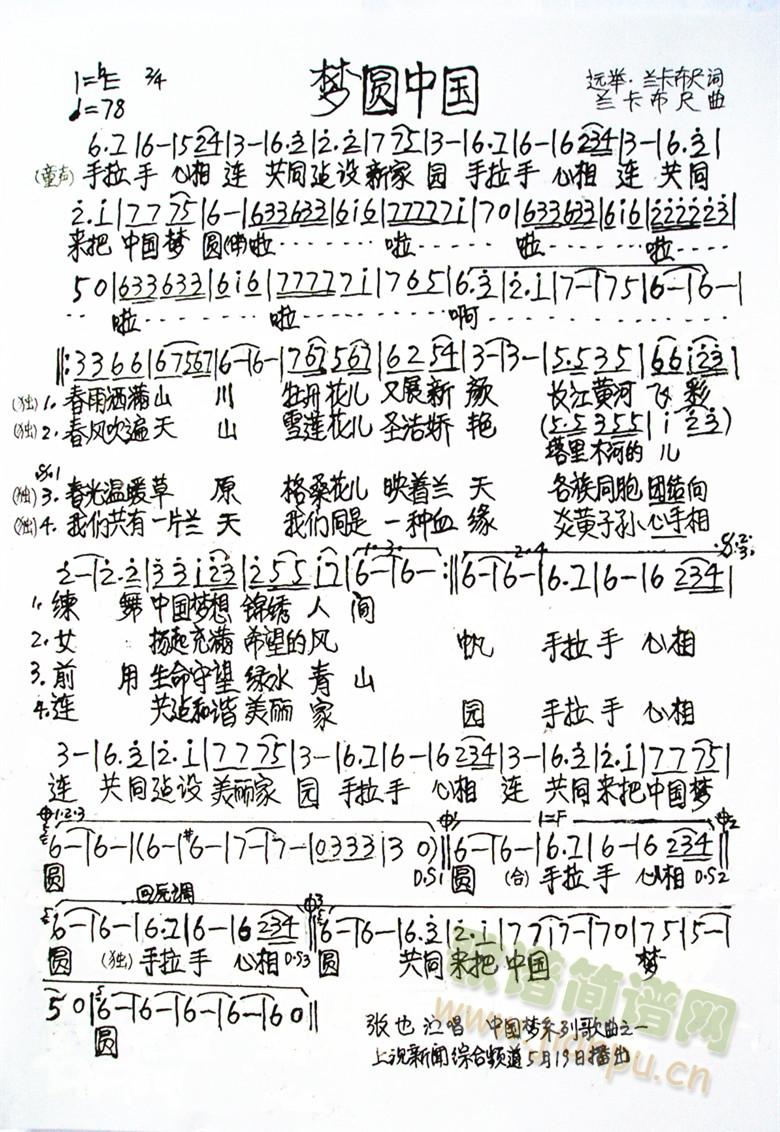 梦圆中国
1=♭E 2/4
♩=78
远举·兰卡布尺词
兰卡布尺曲
6.7|6-|5 24|3-|6.3|2.2|7 75|3-|6.7|6-|6 234|3-|6.3|
(童声) 手拉手 心相连 共同建设新家园 手拉手 心相连 共同
2.i|77 75|6-|633633|6i6|77777i|70|633633|6i6|222223|
来把中国梦圆(伴)啦 啦 啦 啦
50|633633|6i6|77777i|765|6.3|2.i|7-|75|6-|6-|
啦 啦 啊
‖:3366|67567|6-|6-|767567|6254|3-|3-|5.535|66i23|
(独)1.春雨洒满山川 牡丹花儿又展新颜 长江黄河飞彩
(独)2.春风吹遍天山 雪莲花儿圣洁娇艳 (5.5355|i23)
塔里木河的儿
(独)3.春光温暖草原 格桑花儿映着兰天 各族同胞团结向
(独)4.我们共有一片兰天 我们同是一种血缘 炎黄子孙心手相
2-|2.2|33i23|255i7|6-|6-:‖6-|6-|6.7|6-|6 234|
1.练 舞中国梦想锦绣人间
2.女 扬起充满希望的风 帆 手拉手 心相
3.前 用生命守望绿水青山
4.连 共建和谐美丽家 园 手拉手 心相
3-|6.3|2.i|77 75|3-|6.7|6-|6 234|3-|6.3|2.i|77 75|
连 共同建设美丽家园 手拉手 心相连 共同来把中国梦
1.2.3 1=F
6-|6-|(6-|#6-|7-|7-|0333|30)‖6-|6-|6.7|6-|6 234‖
圆 D.S1 圆 (合)手拉手 心相 D.S2
回原调
6-|6-|6.7|6-|6 234‖6-|6-|6.3|2.i|77i|7-|70|75|5-|
圆 (独)手拉手 心相 D.S3 圆 共同来把中国 梦
50|6-|6-|6-|6-|60‖
圆
张也演唱 中国梦系列歌曲之一
上视新闻综合频道5月19日播出
歌谱简谱网
www.jianpu.cn